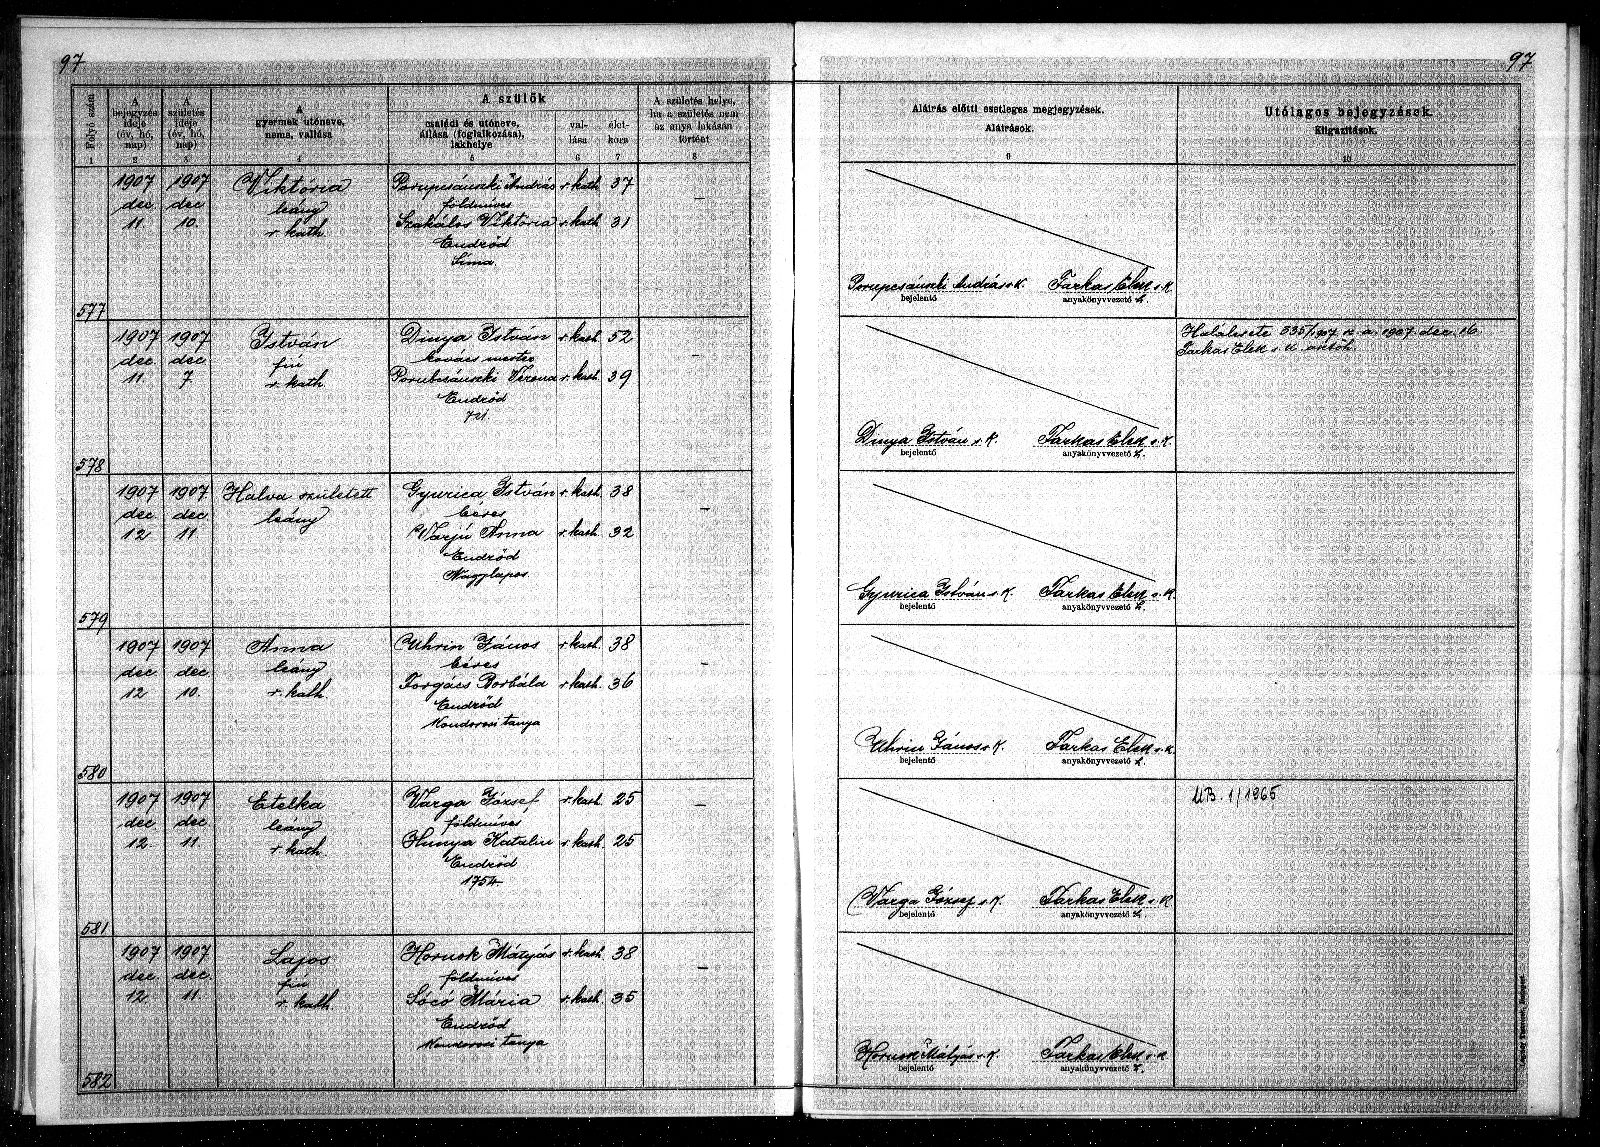 97
97
Folyó szám
A bejegyzés ideje (év, hó, nap)
A születés ideje (év, hó, nap)
A gyermek utóneve, neme, vallása
A szülők
családi és utóneve, állása (foglalkozása), lakhelye
vallása
életkora
A születés helye, ha a születés nem az anya lakásán történt
Aláírás előtti esetleges megjegyzések. Aláírások.
Utólagos bejegyzések. Kiigazítások.
1 2 3 4 5 6 7 8 9 10
1907 1907 Viktória Porupcsánszki András r. kath. 37 –
dec dec leány földmíves
11. 10. r. kath. Szakálos Viktória r. kath. 31
Endrőd
Síma
577
Porupcsánszki András s. k. Farkas Elek s. k.
bejelentő anyakönyvvezető h.
1907 1907 István Dinya István r. kath. 52 –
dec dec fiú kovács mester
11 7. r. kath. Porubcsánszki Verona r. kath. 39
Endrőd
721.
578
Halálesete 335/907 n. a. 1907 dec. 16.
Farkas Elek s. k. anköh.
Dinya István s. k. Farkas Elek s. k.
bejelentő anyakönyvvezető h.
1907 1907 Halva született Gyurica István r. kath. 38 –
dec dec leány béres
12 11. Varjú Anna r. kath. 32
Endrőd
Nagylapos
579
Gyurica István s. k. Farkas Elek s. k.
bejelentő anyakönyvvezető h.
1907 1907 Anna Uhrin János r. kath. 38 –
dec dec. leány béres
12 10. r. kath. Forgács Borbála r. kath. 36
Endrőd
Kondorosi tanya
580
Uhrin János s. k. Farkas Elek s. k.
bejelentő anyakönyvvezető h.
1907 1907 Etelka Varga József r. kath. 25 –
dec dec leány földmíves
12. 11. r. kath. Hunya Katalin r. kath. 25
Endrőd
1754
581
UB. 1/1965
Varga József s. k. Farkas Elek s. k.
bejelentő anyakönyvvezető h.
1907 1907 Lajos Hornok Mátyás r. kath. 38 –
dec. dec. fiú földmíves
12. 11. r. kath. Sócó Mária r. kath. 35
Endrőd
Kondorosi tanya
582
Hornok Mátyás s. k. Farkas Elek s. k.
bejelentő anyakönyvvezető h.